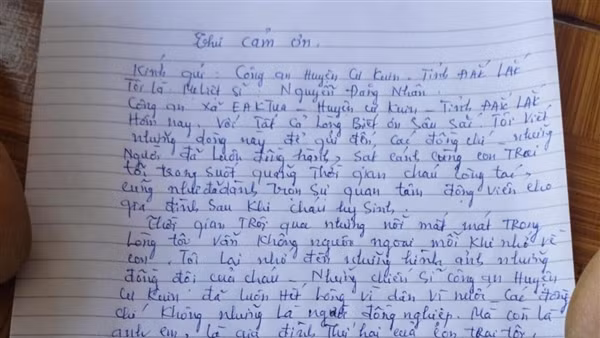 Thư cảm ơn.
Kính gửi: Công an Huyện Cư Kuin. Tỉnh ĐẮK LẮK
Tôi là Mẹ Liệt Sĩ - Nguyễn Đăng Nhân
Công an xã EAKTUa - Huyện cư Kuin - Tỉnh ĐẮK LẮK
Hôm nay. Với Tất Cả Lòng Biết ơn Sâu Sắc Tôi Viết
những dòng này để gửi đến, Các đồng chí - những
Người đã luôn đồng hành, Sát cánh cùng con TRai
tôi trong suốt quãng Thời gian cháu công tác,
cũng như đã dành trọn Sự quan tâm động viên cho
gia đình sau Khi cháu hy Sinh.
Thời gian TRôi qua nhưng nỗi mất mát TRong
Lòng tôi vẫn Không nguôi ngoai mỗi Khi nhớ về
con. Tôi Lại nhớ đến những hình ảnh những
đồng đội của cháu - Những chiến Sĩ công an Huyện
Cư Kuin đã luôn Hết Lòng vì dân vì nước. Các đồng
chí Không những Là người đồng nghiệp. Mà còn là
anh em, là gia đình Thứ hai của con trai tôi.